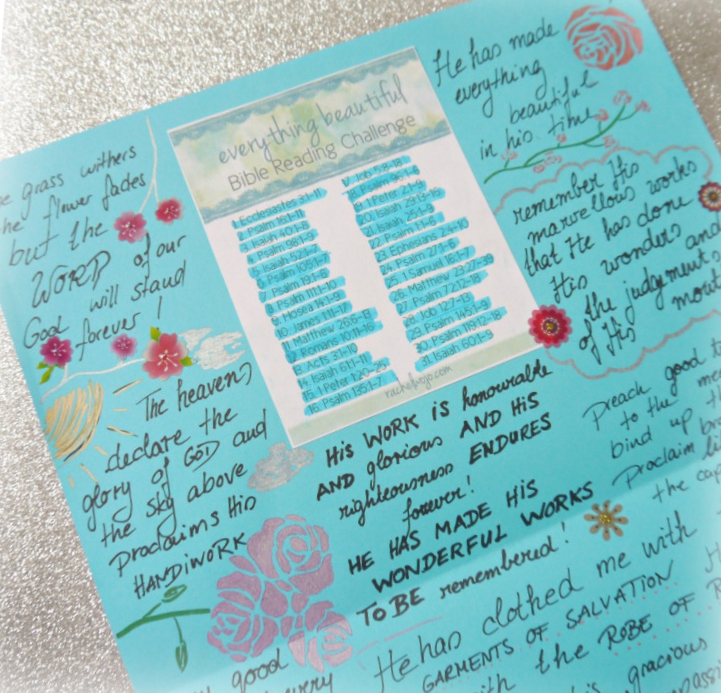 grass withers
the flower fades
but the
WORD of our
God will stand
forever!
The heavens
declare the
glory of GOD and
the sky above
proclaims His
HANDIWORK
everything beautiful
Bible Reading Challenge
1. Ecclesiastes 3:1-11
2. Psalm 16:1-11
3. Isaiah 40:1-8
4. Psalm 96:1-9
5. Isaiah 52:1-7
6. Psalm 105:1-7
7. Psalm 19:1-6
8. Psalm 111:1-10
9. Hosea 14:1-9
10. James 1:1-17
11. Matthew 26:6-13
12. Romans 10:11-16
13. Acts 3:1-10
14. Isaiah 61:1-11
15. 1 Peter 1:20-25
16. Psalm 135:1-7
17. Job 5:8-18
18. Psalm 95:1-6
19. 1 Peter 2:1-9
20. Isaiah 29:13-19
21. Isaiah 25:1-9
22. Psalm 1:1-6
23. Ephesians 2:4-10
24. Psalm 27:1-6
25. 1 Samuel 16:1-7
26. Matthew 23:27-39
27. Psalm 72:12-19
28. Job 12:7-13
29. Psalm 145:1-9
30. Psalm 119:12-18
31. Isaiah 60:1-5
He has made
everything
beautiful
in his time
remember His
marvellous works
that He has done
His wonders and
the judgements
of His
HIS WORK is honourable
AND glorious AND HIS
righteousness ENDURES
forever!
HE HAS MADE HIS
WONDERFUL WORKS
TO BE remembered!
Preach good
to the
bind up
Proclaim
the
He has clothed me with
GARMENTS OF SALVATION
with the ROBE OF
good
every
gracious